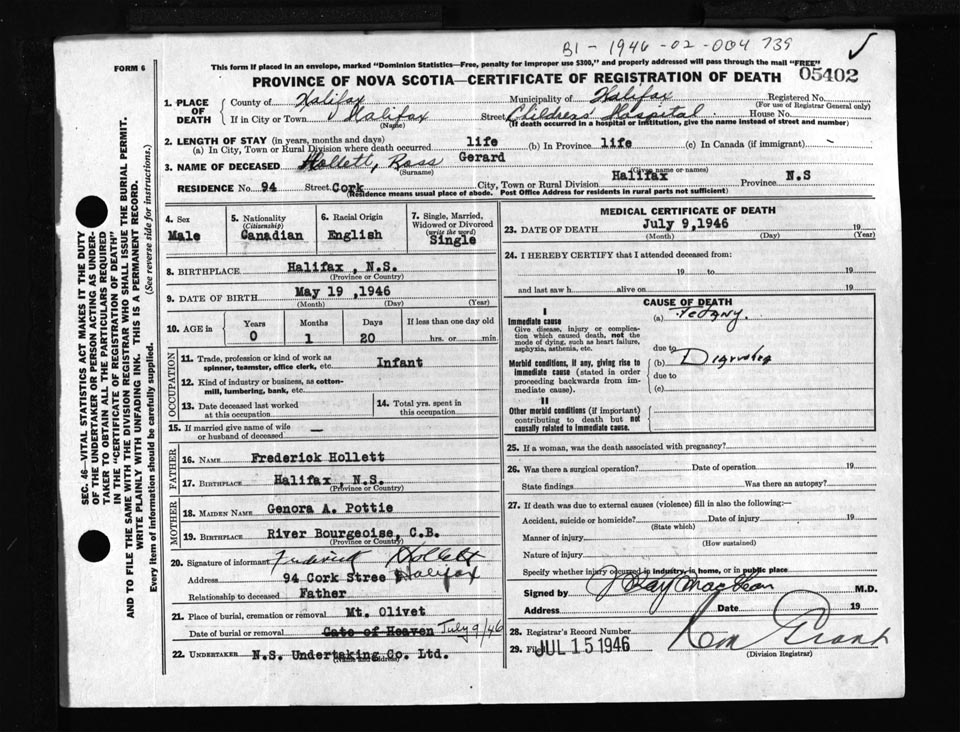 B1-1946-02-004739
FORM 6
This form if placed in an envelope, marked "Dominion Statistics—Free, penalty for improper use $300," and properly addressed will pass through the mail "FREE"
PROVINCE OF NOVA SCOTIA—CERTIFICATE OF REGISTRATION OF DEATH
05402
SEC. 46—VITAL STATISTICS ACT MAKES IT THE DUTY
OF THE UNDERTAKER OR PERSON ACTING AS UNDER-
TAKER TO OBTAIN ALL THE PARTICULARS REQUIRED
IN THE "CERTIFICATE OF REGISTRATION OF DEATH" AND
TO FILE THE SAME WITH THE DIVISION REGISTRAR WHO SHALL ISSUE THE BURIAL PERMIT.
WRITE PLAINLY WITH UNFADING INK. THIS IS A PERMANENT RECORD.
Every item of information should be carefully supplied. (See reverse side for instructions.)
1. PLACE OF DEATH
County of Halifax Municipality of Halifax Registered No.
(For use of Registrar General only)
If in City or Town Halifax Street Childrens Hospital House No.
(Name) (If death occurred in a hospital or institution, give the name instead of street and number)
2. LENGTH OF STAY (in years, months and days)
(a) In City, Town or Rural Division where death occurred life (b) In Province life (c) In Canada (if immigrant) -
3. NAME OF DECEASED Hollett, Ross Gerard
(Surname) (Given name or names)
RESIDENCE No. 94 Street Cork City, Town or Rural Division Halifax Province N.S
(Residence means usual place of abode. Post Office Address for residents in rural parts not sufficient)
4. Sex Male
5. Nationality (Citizenship) Canadian
6. Racial Origin English
7. Single, Married, Widowed or Divorced (write the word) Single
8. BIRTHPLACE Halifax, N.S.
(Province or Country)
9. DATE OF BIRTH May 19, 1946
(Month) (Day) (Year)
10. AGE in Years 0 Months 1 Days 20 If less than one day old hrs. or min.
OCCUPATION
11. Trade, profession or kind of work as spinner, teamster, office clerk, etc. Infant
12. Kind of industry or business, as cotton-mill, lumbering, bank, etc.
13. Date deceased last worked at this occupation
14. Total yrs. spent in this occupation
15. If married give name of wife or husband of deceased —
FATHER
16. NAME Frederick Hollett
17. BIRTHPLACE Halifax, N.S.
(Province or Country)
MOTHER
18. MAIDEN NAME Genora A. Pottie
19. BIRTHPLACE River Bourgeoise, C.B.
(Province or Country)
20. Signature of informant Frederick Hollett
Address 94 Cork Stree Halifax
Relationship to deceased Father
21. Place of burial, cremation or removal Mt. Olivet
Date of burial or removal Gate of Heaven July 9/46
22. UNDERTAKER N.S. Undertaking Co. Ltd.
(Name and address)
MEDICAL CERTIFICATE OF DEATH
23. DATE OF DEATH July 9, 1946 19
(Month) (Day) (Year)
24. I HEREBY CERTIFY that I attended deceased from:
19 to 19
and last saw h alive on 19
CAUSE OF DEATH
I
Immediate cause (a) Tetany.
Give disease, injury or complication which caused death, not the mode of dying, such as heart failure, asphyxia, asthenia, etc.
due to
Morbid conditions, if any, giving rise to immediate cause (stated in order proceeding backwards from immediate cause). (b)
due to
(c)
II
Other morbid conditions (if important) contributing to death but not causally related to immediate cause.
25. If a woman, was the death associated with pregnancy?
26. Was there a surgical operation? Date of operation 19
State findings Was there an autopsy?
27. If death was due to external causes (violence) fill in also the following:—
Accident, suicide or homicide? Date of injury 19
(State which)
Manner of injury
(How sustained)
Nature of injury
Specify whether injury occurred in industry, in home, or in public place
Signed by M.D.
Address Date 19
28. Registrar's Record Number
29. Filed JUL 15 1946 Grant
(Division Registrar)